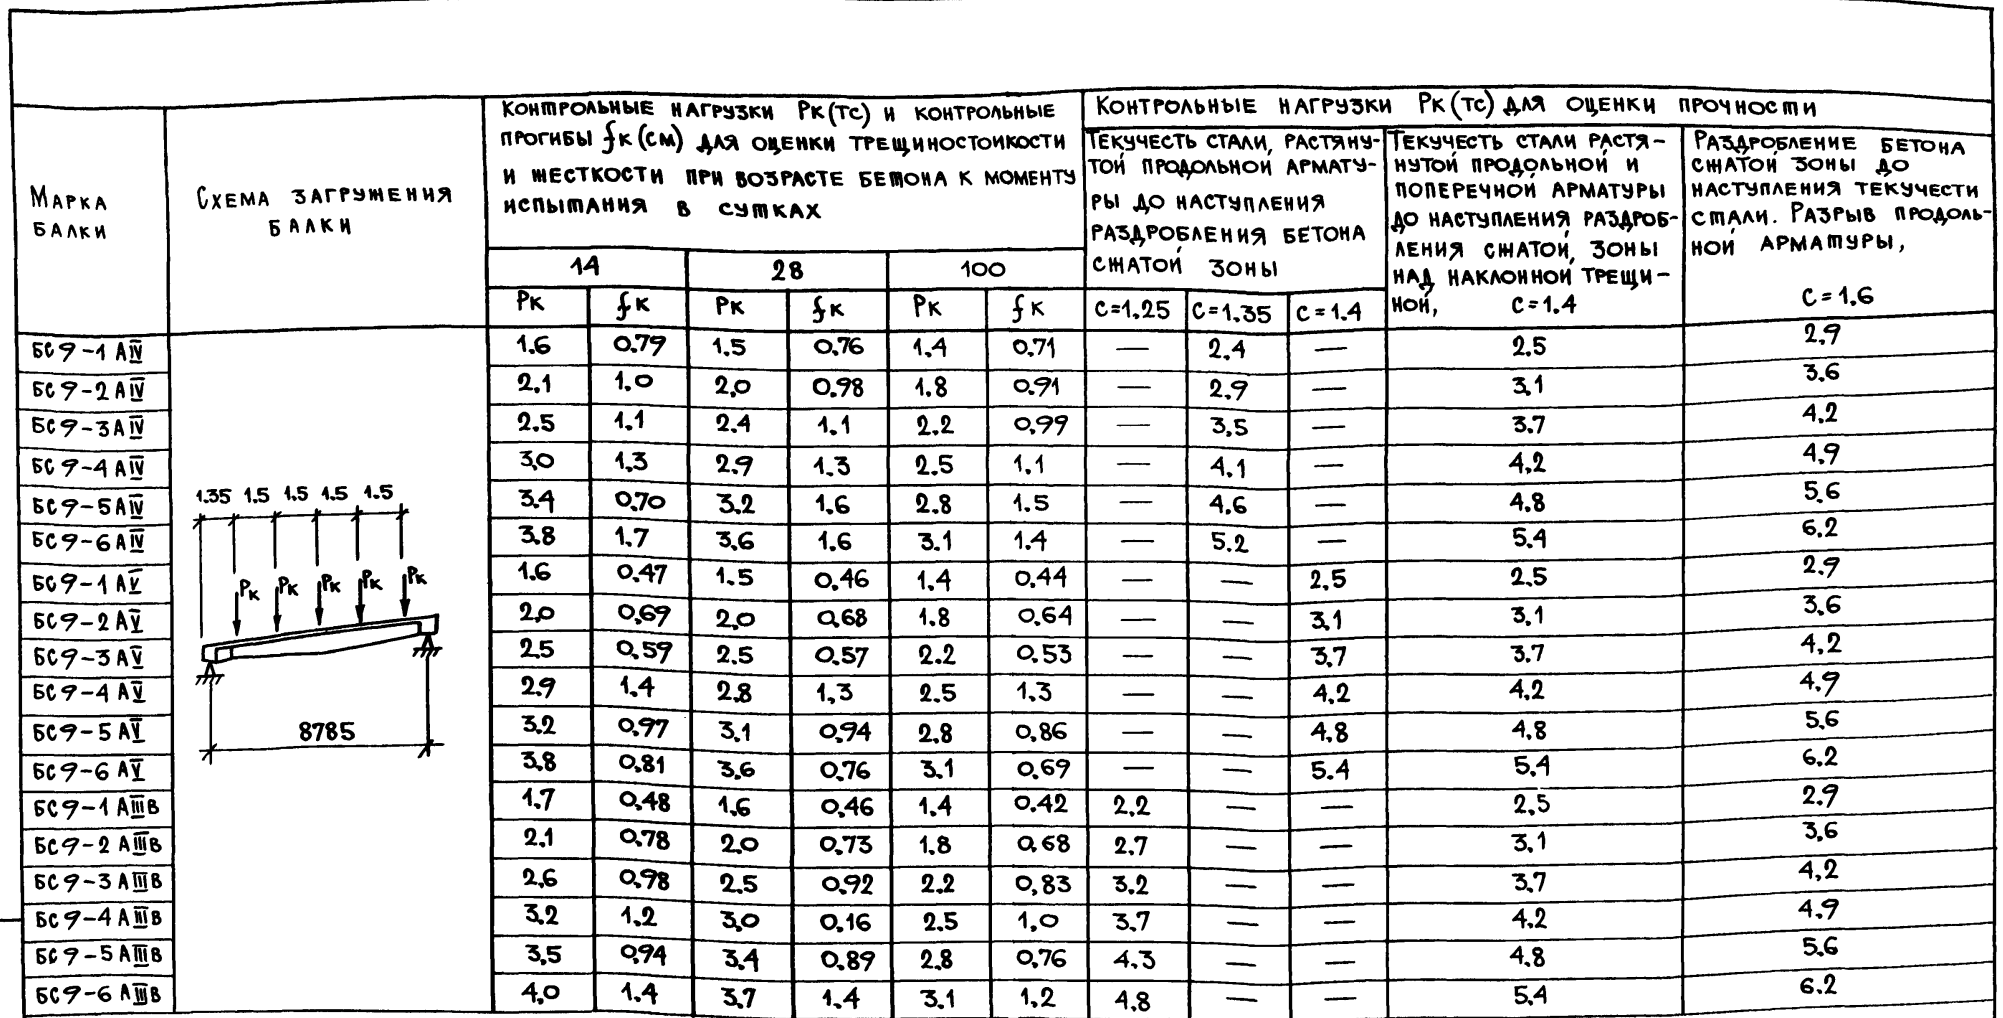 Марка
балки
Схема загружения
балки
Контрольные нагрузки Рк (тс) и контрольные
прогибы fк (см) для оценки трещиностоикости
и жесткости при возрасте бетона к моменту
испытания в сутках
14 28 100
Рк fк Рк fк Рк fк
Контрольные нагрузки Рк (тс) для оценки прочности
Текучесть стали, растяну-
той продольной армату-
ры до наступления
раздробления бетона
сжатой зоны
С=1.25 С=1.35 С=1.4
Текучесть стали растя-
нутой продольной и
поперечной арматуры
до наступления раздроб-
ления сжатой, зоны
над наклонной трещи-
ной, С=1.4
Раздробление бетона
сжатой зоны до
наступления текучести
стали. Разрыв продоль-
ной арматуры,
С=1.6
БС9-1 АIV 1.6 0.79 1.5 0.76 1.4 0.71 — 2.4 — 2.5 2.9
БС9-2 АIV 2.1 1.0 2.0 0.98 1.8 0.91 — 2.9 — 3.1 3.6
БС9-3 АIV 2.5 1.1 2.4 1.1 2.2 0.99 — 3.5 — 3.7 4.2
БС9-4 АIV 3.0 1.3 2.9 1.3 2.5 1.1 — 4.1 — 4.2 4.9
БС9-5 АIV 3.4 0.70 3.2 1.6 2.8 1.5 — 4.6 — 4.8 5.6
БС9-6 АIV 3.8 1.7 3.6 1.6 3.1 1.4 — 5.2 — 5.4 6.2
БС9-1 АV 1.6 0.47 1.5 0.46 1.4 0.44 — — 2.5 2.5 2.9
БС9-2 АV 2.0 0.69 2.0 0.68 1.8 0.64 — — 3.1 3.1 3.6
БС9-3 АV 2.5 0.59 2.5 0.57 2.2 0.53 — — 3.7 3.7 4.2
БС9-4 АV 2.9 1.4 2.8 1.3 2.5 1.3 — — 4.2 4.2 4.9
БС9-5 АV 3.2 0.97 3.1 0.94 2.8 0.86 — — 4.8 4.8 5.6
БС9-6 АV 3.8 0.81 3.6 0.76 3.1 0.69 — — 5.4 5.4 6.2
БС9-1 АIIIв 1.7 0.48 1.6 0.46 1.4 0.42 2.2 — — 2.5 2.9
БС9-2 АIIIв 2.1 0.78 2.0 0.73 1.8 0.68 2.7 — — 3.1 3.6
БС9-3 АIIIв 2.6 0.98 2.5 0.92 2.2 0.83 3.2 — — 3.7 4.2
БС9-4 АIIIв 3.2 1.2 3.0 0.16 2.5 1.0 3.7 — — 4.2 4.9
БС9-5 АIIIв 3.5 0.94 3.4 0.89 2.8 0.76 4.3 — — 4.8 5.6
БС9-6 АIIIв 4.0 1.4 3.7 1.4 3.1 1.2 4.8 — — 5.4 6.2
1.35 1.5 1.5 1.5 1.5
Рк Рк Рк Рк Рк
8785